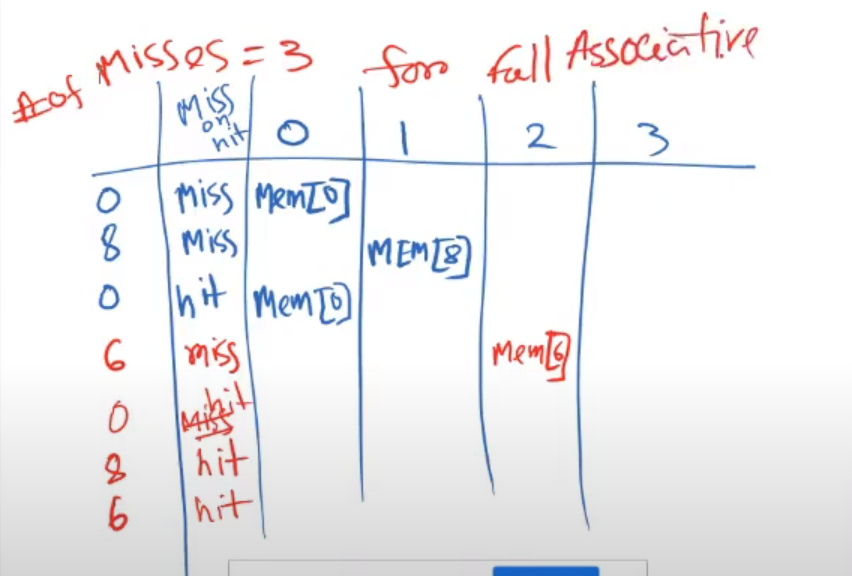 # of Misses = 3 for full Associative
Miss on hit 0 1 2 3
0 Miss Mem[0]
8 Miss MEM[8]
0 hit Mem[0]
6 miss Mem[6]
0 Miss hit
8 hit
6 hit